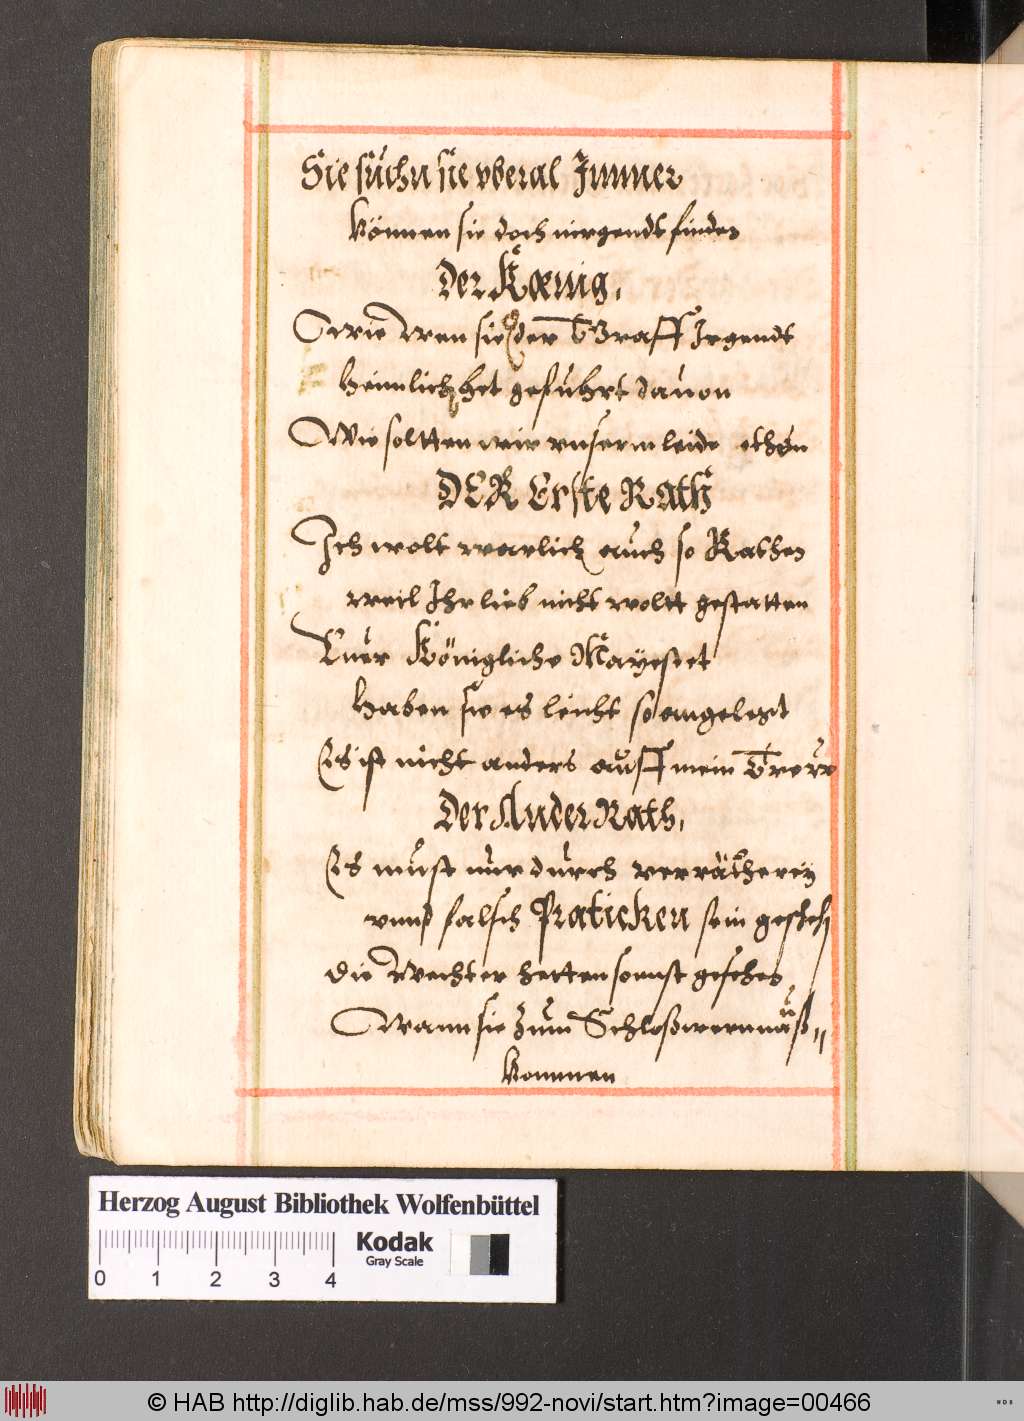 Sie suchn sie vberal Immer
können sie doch nirgendt finden
Der Kœnig,
Wie Wen sie der Graff Irgendt
heimlich het gefuhrt dauon
Wie soltten wir vnserm leide thon
DER Erste Rath
Ich wolt warlich auch so Rathen
weil Ihr lieb nicht woltt gestatten
Euer Königliche Mayestet
haben sie es leicht so angelegt
Es ist nicht anders auff mein Trew
Der Ander Rath,
Es must nur durch verrätherey
vnnd falsch Praticken sein gescheh
die Wechter hetten sonnst gesehes
Wann sie zum Schloß wern nauß
kommen
Herzog August Bibliothek Wolfenbüttel
Kodak
Gray Scale
0 1 2 3 4
© HAB http://diglib.hab.de/mss/992-novi/start.htm?image=00466